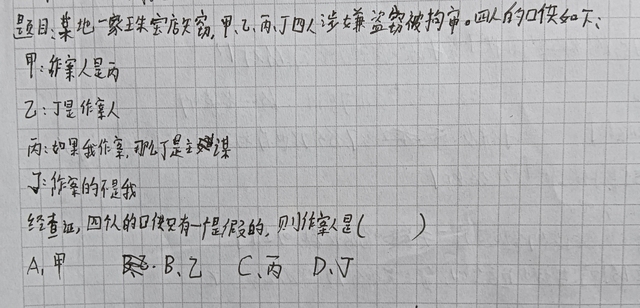 题目:某地一家珠宝店失窃,甲、乙、丙、丁四人涉嫌盗窃被拘审。四人的口供如下:
甲:作案人是丙
乙:丁是作案人
丙:如果我作案,那么丁是主谋
丁:作案的不是我
经查证,四个人的口供只有一个是假的,则作案人是( )
A、甲 B、乙 C、丙 D、丁